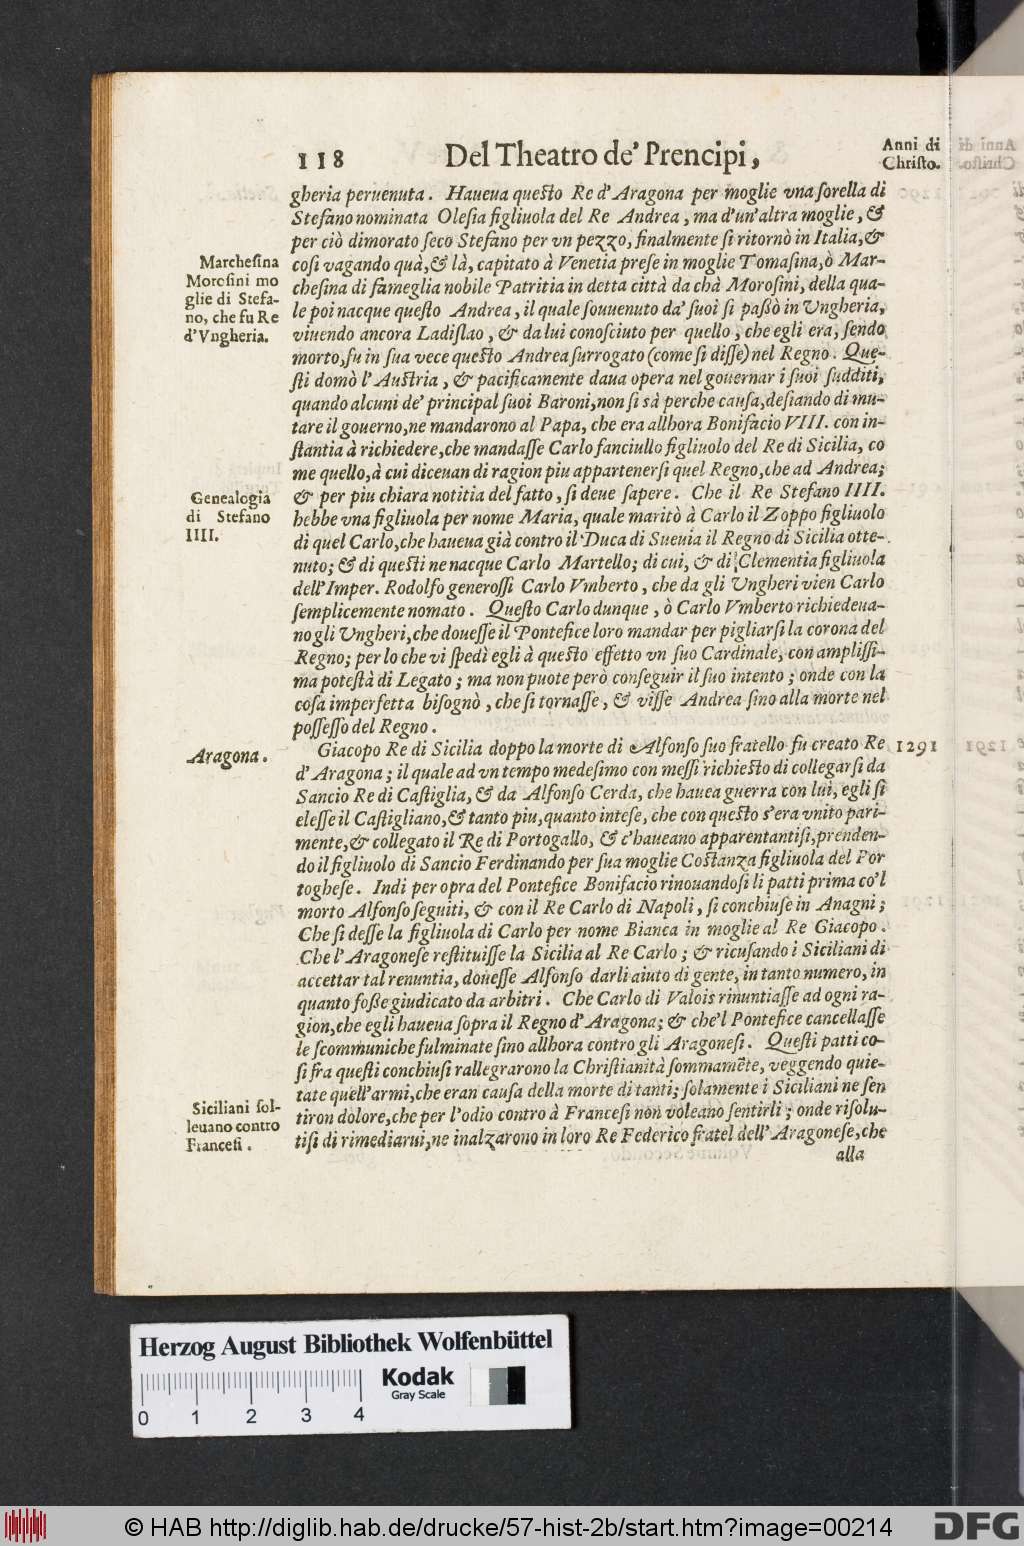 118 Del Theatro de' Prencipi, Anni di
Christo.
gheria peruenuta. Haueua questo Re d'Aragona per moglie vna sorella di
Stefano nominata Olesia figliuola del Re Andrea, ma d'un'altra moglie, &
per ciò dimorato seco Stefano per vn pezzo, finalmente si ritornò in Italia, &
Marchesina
Moresini mo
glie di Stefa-
no, che fu Re
d'Vngheria.
cosi vagando quà, & là, capitato à Venetia prese in moglie Tomasina, ò Mar-
chesina di fameglia nobile Patritia in detta città da chà Morosini, della qua-
le poi nacque questo Andrea, il quale souuenuto da' suoi si passò in Vngheria,
viuendo ancora Ladislao, & da lui conosciuto per quello, che egli era, sendo
morto, fu in sua vece questo Andrea surrogato (come si disse) nel Regno. Que-
sti domò l'Austria, & pacificamente daua opera nel gouernar i suoi sudditi,
quando alcuni de' principal suoi Baroni, non si sà perche causa, desiando di mu-
tare il gouerno, ne mandarono al Papa, che era allhora Bonifacio VIII. con in-
stantia à richiedere, che mandasse Carlo fanciullo figliuolo del Re di Sicilia, co
me quello, à cui diceuan di ragion piu appartenersi quel Regno, che ad Andrea;
Genealogia
di Stefano
IIII.
& per piu chiara notitia del fatto, si deue sapere. Che il Re Stefano IIII.
hebbe vna figliuola per nome Maria, quale maritò à Carlo il Zoppo figliuolo
di quel Carlo, che haueua già contro il Duca di Sueuia il Regno di Sicilia otte-
nuto; & di questi ne nacque Carlo Martello; di cui, & di Clementia figliuola
dell'Imper. Rodolfo generossi Carlo Vmberto, che da gli Vngheri vien Carlo
semplicemente nomato. Questo Carlo dunque, ò Carlo Vmberto richiedeua-
no gli Vngheri, che douesse il Pontefice loro mandar per pigliarsi la corona del
Regno; per lo che vi spedì egli à questo effetto vn suo Cardinale, con amplissi-
ma potestà di Legato; ma non puote però conseguir il suo intento; onde con la
cosa imperfetta bisognò, che si tornasse, & visse Andrea sino alla morte nel
possesso del Regno.
Aragona.
Giacopo Re di Sicilia doppo la morte di Alfonso suo fratello fu creato Re 1291
d'Aragona; il quale ad vn tempo medesimo con messi richiesto di collegarsi da
Sancio Re di Castiglia, & da Alfonso Cerda, che hauea guerra con lui, egli si
elesse il Castigliano, & tanto piu, quanto intese, che con questo s'era vnito pari-
mente, & collegato il Re di Portogallo, & c'haueano apparentantisi, prenden-
do il figliuolo di Sancio Ferdinando per sua moglie Costanza figliuola del Por
toghese. Indi per opra del Pontefice Bonifacio rinouandosi li patti prima co'l
morto Alfonso seguiti, & con il Re Carlo di Napoli, si conchiuse in Anagni;
Che si desse la figliuola di Carlo per nome Bianca in moglie al Re Giacopo.
Che l'Aragonese restituisse la Sicilia al Re Carlo; & ricusando i Siciliani di
accettar tal renuntia, douesse Alfonso darli aiuto di gente, in tanto numero, in
quanto fosse giudicato da arbitri. Che Carlo di Valois rinuntiasse ad ogni ra-
gion, che egli haueua sopra il Regno d'Aragona; & che'l Pontefice cancellasse
le scommuniche fulminate sino allhora contro gli Aragonesi. Questi patti co-
si fra questi conchiusi rallegrarono la Christianità sommamēte, veggendo quie-
tate quell'armi, che eran causa della morte di tanti; solamente i Siciliani ne sen
Siciliani sol-
leuano contro
Francesi.
tiron dolore, che per l'odio contro à Francesi non voleano sentirli; onde risolu-
tisi di rimediarui, ne inalzarono in loro Re Federico fratel dell'Aragonese, che
alla
Herzog August Bibliothek Wolfenbüttel
0 1 2 3 4
Kodak
Gray Scale
© HAB http://diglib.hab.de/drucke/57-hist-2b/start.htm?image=00214
DFG